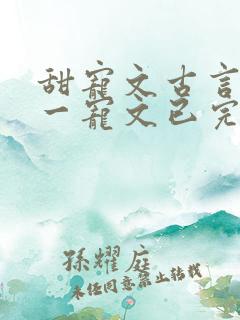 甜寵文古言
一寵文已完
孫耀庭
未任同意禁止转载